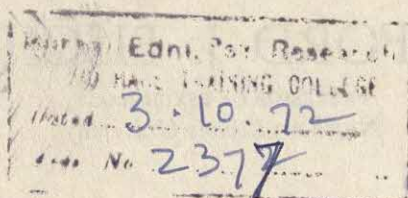 Ednl. Psy. Research
TRAINING COLLEGE
Dated 3.10.72
No 2377